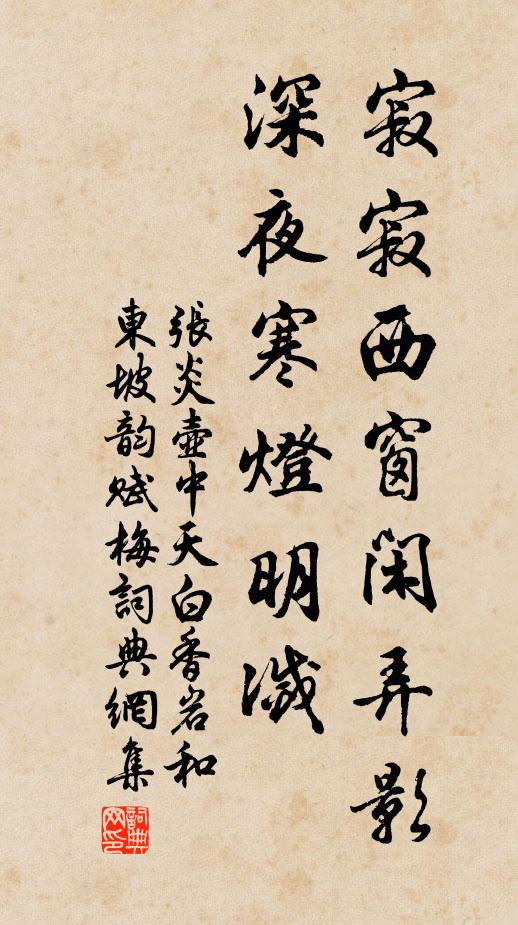 寂寂西窗閑弄影
深夜寒燈明滅
張炎壺中天白香岩和
東坡韵賦梅詞典網集
詞典网印